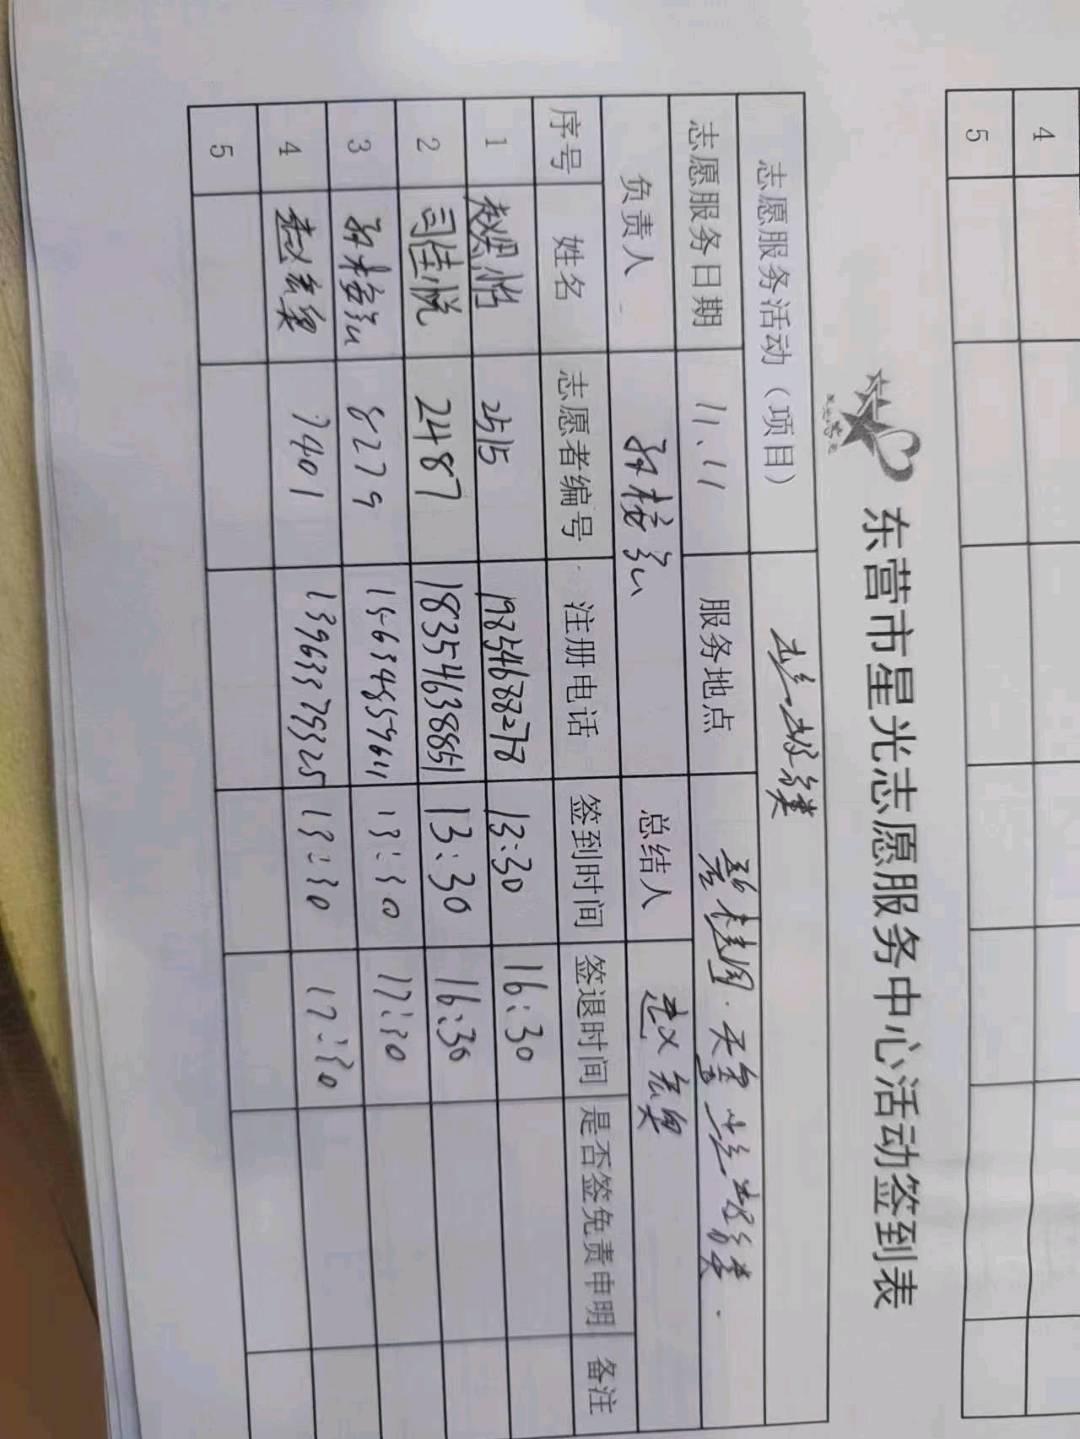 4
5
东营市星光志愿服务中心活动签到表
志愿服务活动（项目）
志愿服务日期 11、11 服务地点 碧桂园·天玺
负责人 总结人
序号 姓名 志愿者编号 注册电话 签到时间 签退时间 是否签免责申明 备注
1 赵思怡 2515 19854688278 13:30 16:30
2 司佳悦 2487 18354638851 13:30 16:30
3 8279 15634557611 13:30 17:30
4 7401 13963379325 13:30 17:30
5